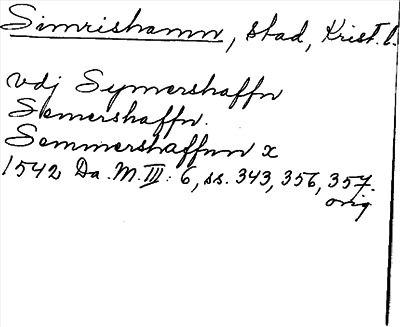 Simrishamn, stad, Krist. l.
vdj Symershaffn
Semershaffn.
Semmershaffnn x
1542 Da. M. III: 6, ss. 343, 356, 357.
orig